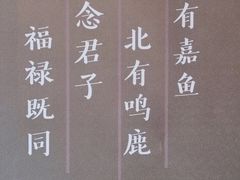 有嘉鱼
北有鸣鹿
念君子
福禄既同